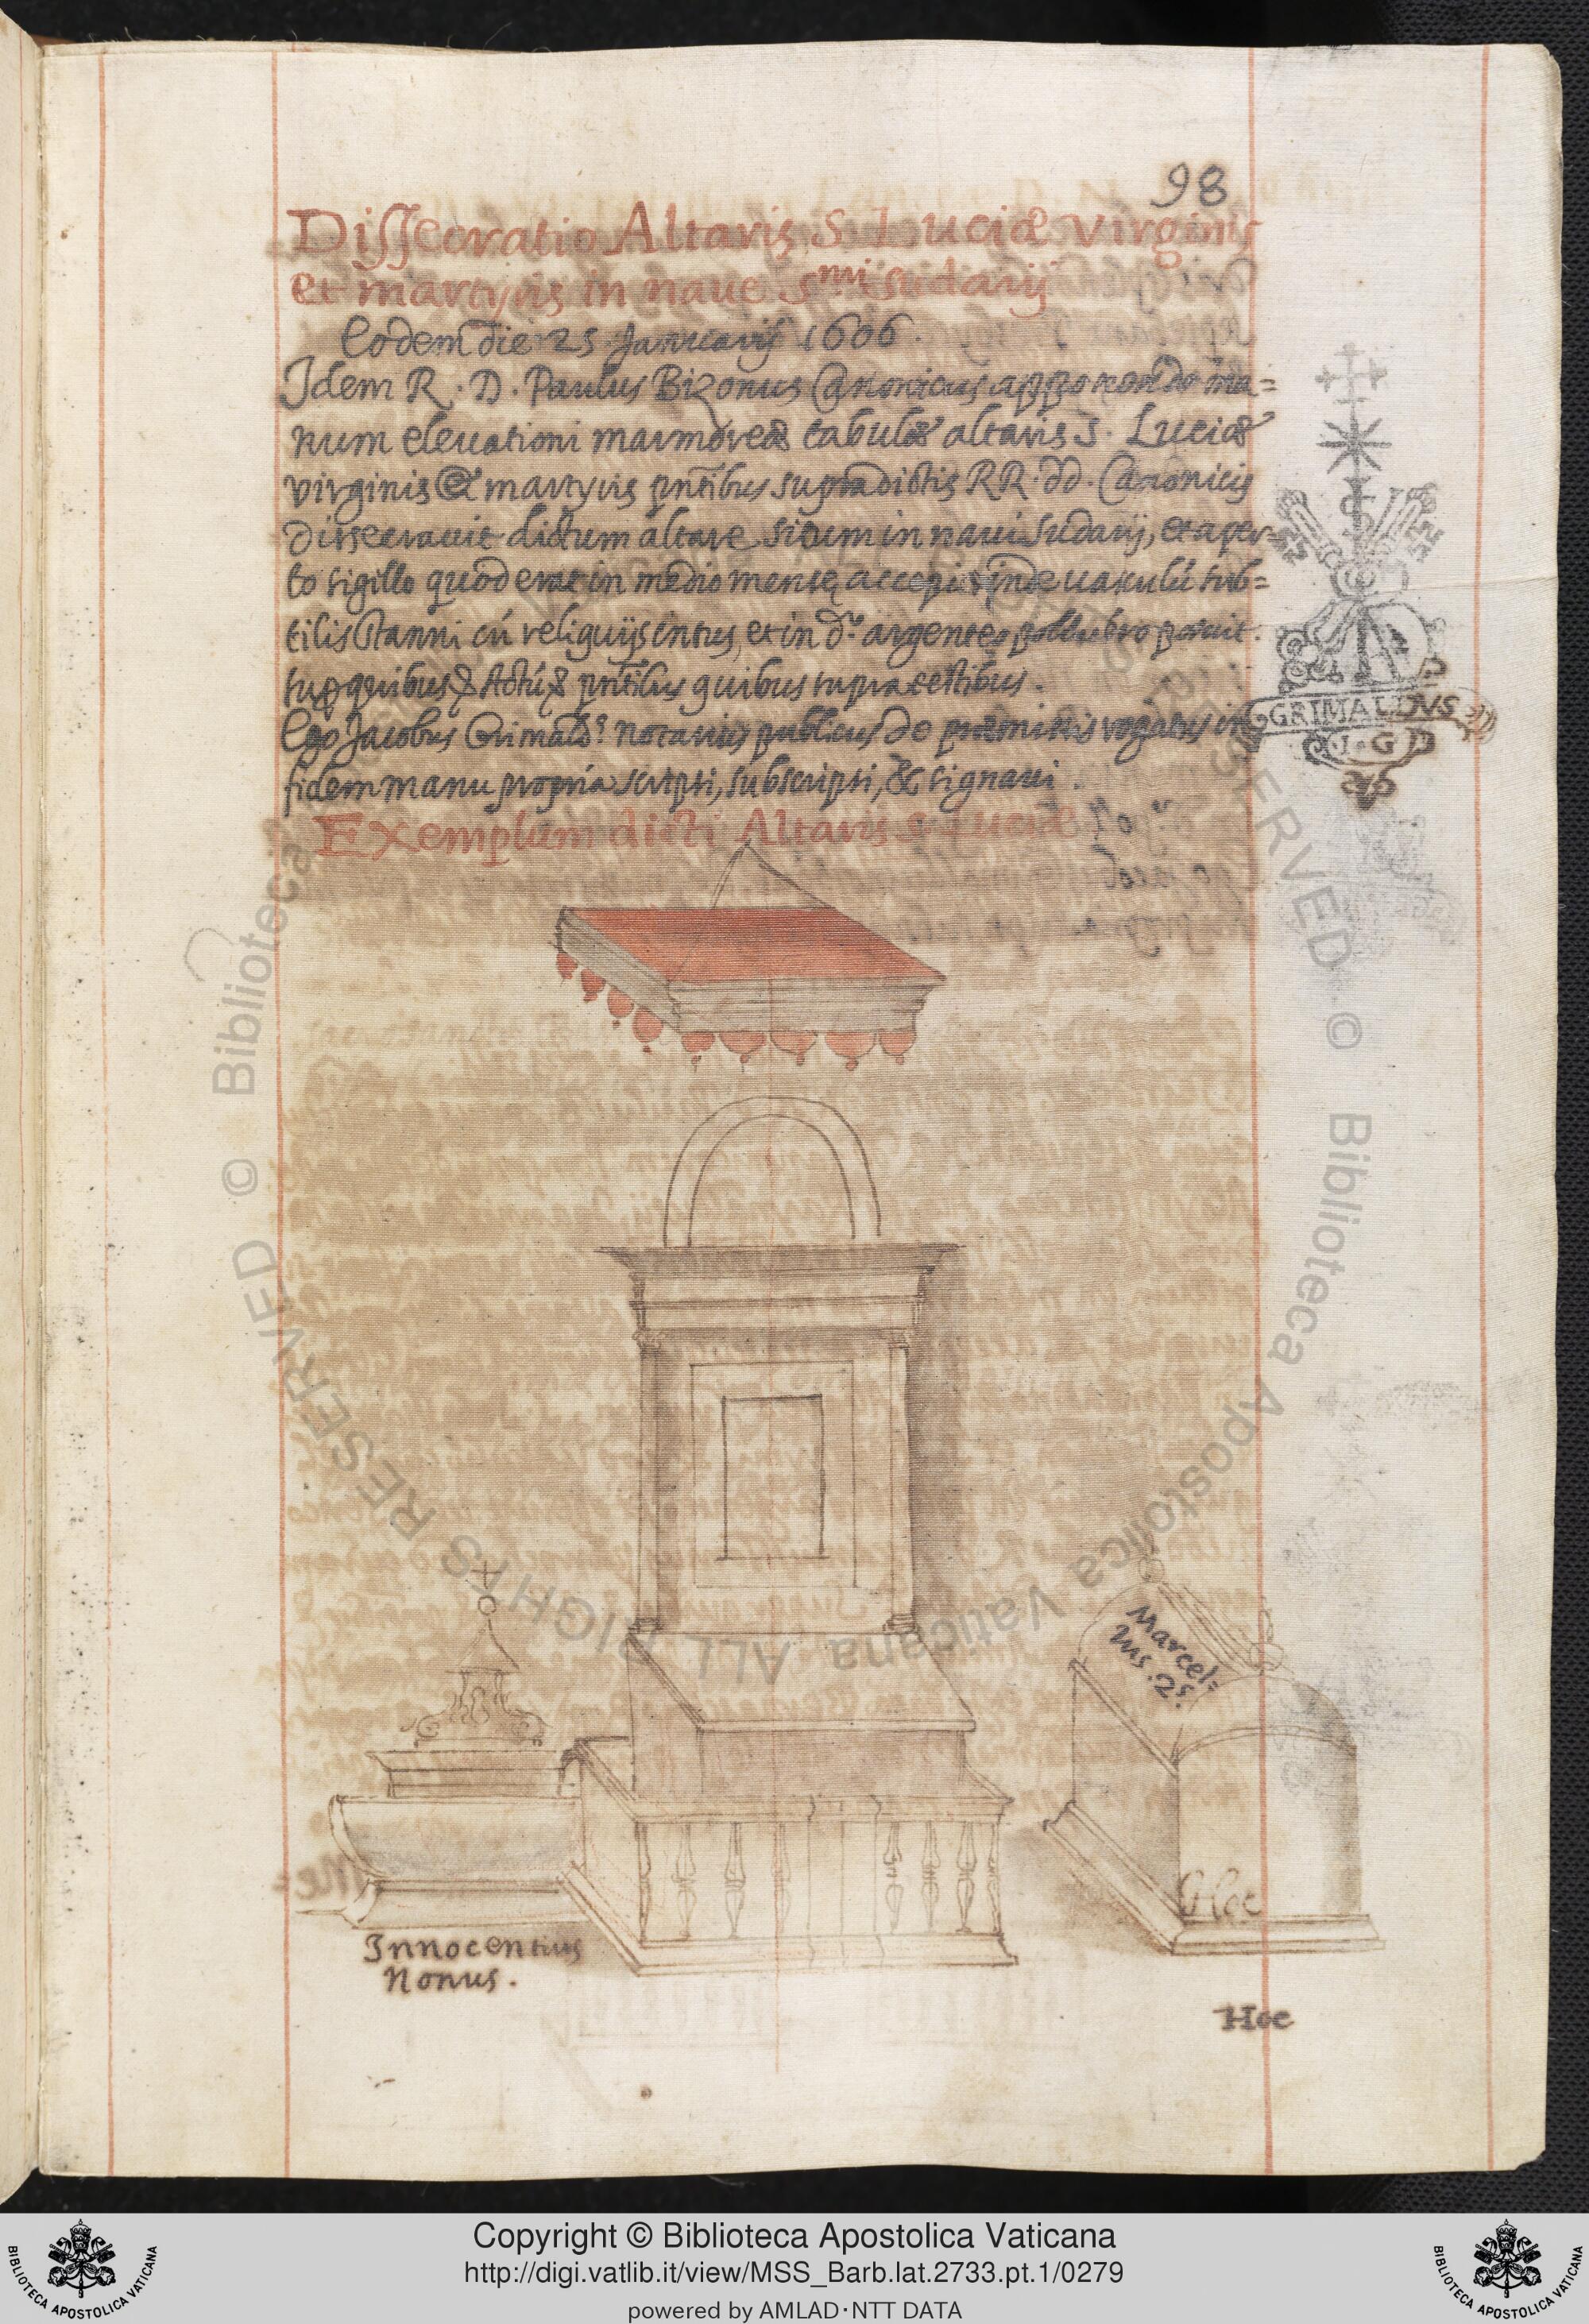 98
Dissecratio Altaris S. Luciæ virginis
et martyris in naue S.mi sudarij
Eodem die 25 Januarij 1606.
Idem R. D. Paulus Bizonus Canonicus apponendo ma=
num eleuationi marmoreæ tabulæ altaris S. Luciæ
virginis & martyris pntibus supradictis RR. DD. Canonicis
dissecrauit dictum altare situm in naui sudarij, et aper-
to sigillo quod erat in medio mensę accepit inde uasculū sub=
tilis stanni cū reliquijs intus, et in d.o argenteo pollubro posuit.
sup quibus & Actū & pntibus quibus supra testibus.
Ego Jacobus Grimald.s notarius publicus de præmissis rogatus in
fidem manu propria scripsi, subscripsi, & signaui.
GRIMALDVS
I. G
Exemplum dicti Altaris S. Luciæ
Marcel=
lus .2s.
Hoc
Innocentius
Nonus.
Hoc
© Biblioteca Apostolica Vaticana ALL RIGHTS RESERVED
Copyright © Biblioteca Apostolica Vaticana
http://digi.vatlib.it/view/MSS_Barb.lat.2733.pt.1/0279
powered by AMLAD·NTT DATA
BIBLIOTECA APOSTOLICA VATICANA
BIBLIOTECA APOSTOLICA VATICANA